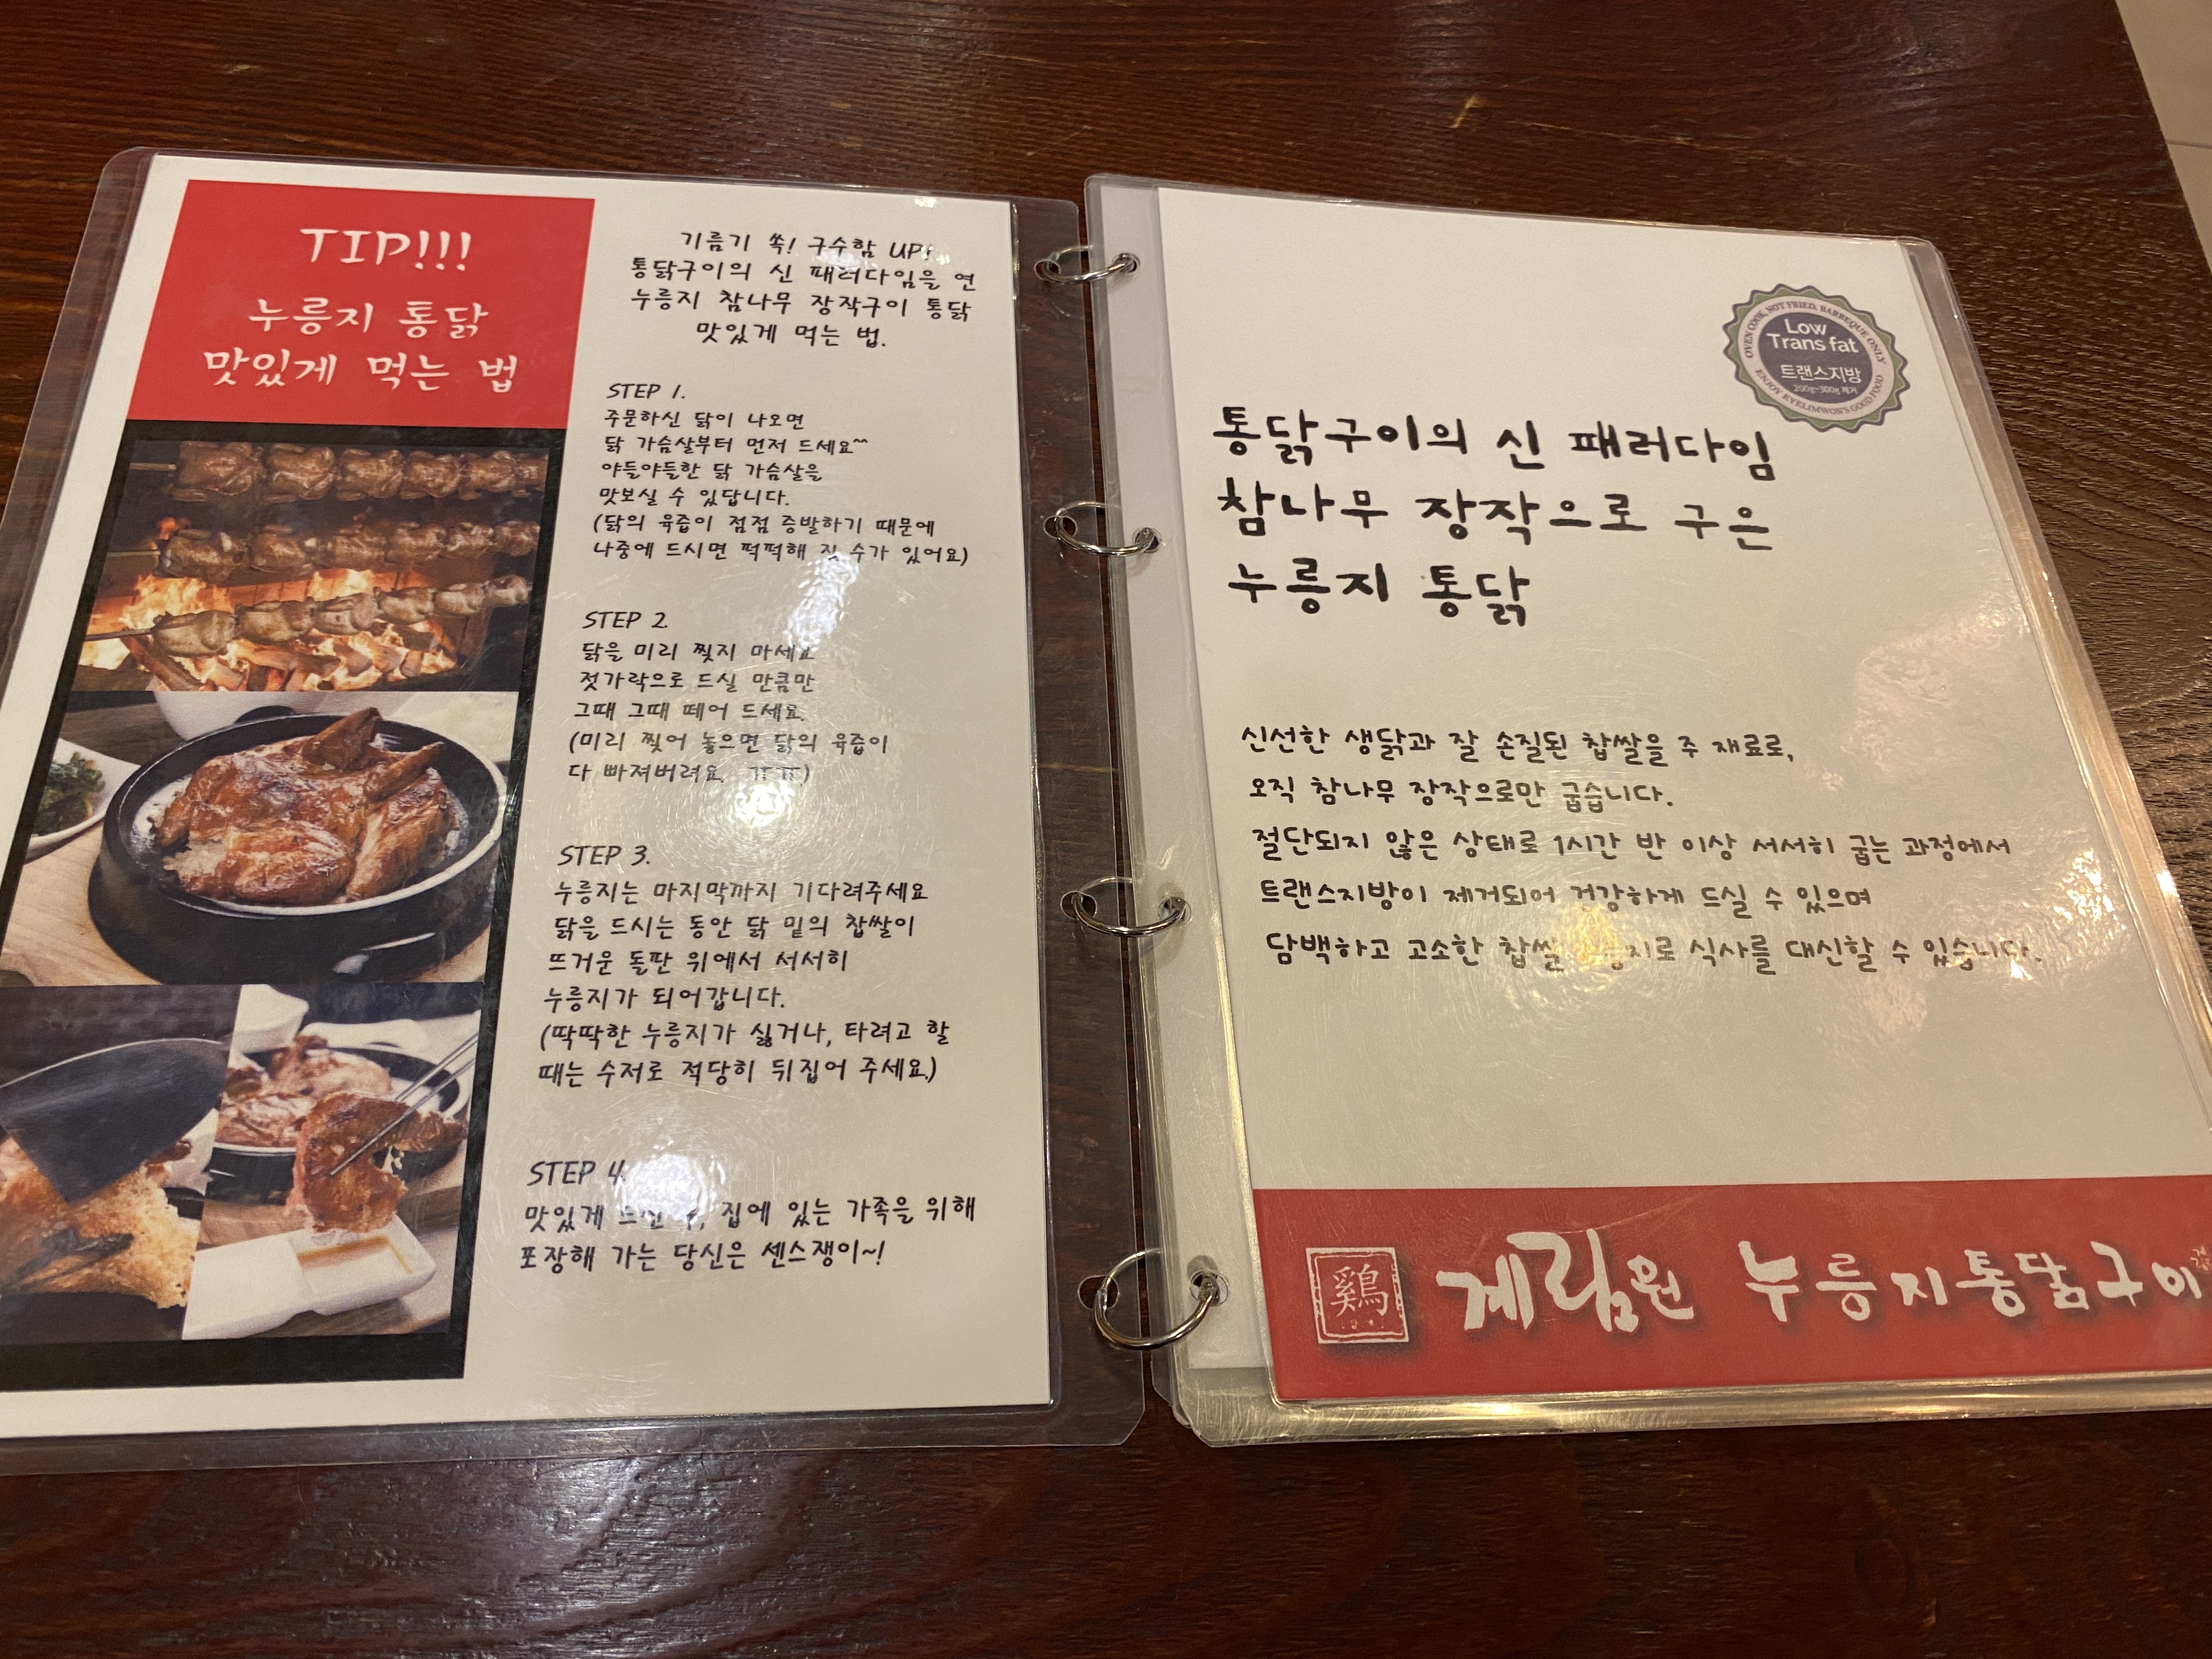 TIP!!!
누룽지 통닭
맛있게 먹는 법
기름기 쏙! 구수함 UP!
통닭구이의 신 패러다임을 연
누룽지 참나무 장작구이 통닭
맛있게 먹는 법.
STEP 1.
주문하신 닭이 나오면
닭 가슴살부터 먼저 드세요^^
야들야들한 닭 가슴살을
맛보실 수 있답니다.
(닭의 육즙이 점점 증발하기 때문에
나중에 드시면 퍽퍽해 질 수가 있어요)
STEP 2.
닭을 미리 찢지 마세요
젓가락으로 드실 만큼만
그때 그때 떼어 드세요.
(미리 찢어 놓으면 닭의 육즙이
다 빠져버려요. ㅠㅠ)
STEP 3.
누룽지는 마지막까지 기다려주세요
닭을 드시는 동안 닭 밑의 찹쌀이
뜨거운 돌판 위에서 서서히
누룽지가 되어갑니다.
(딱딱한 누룽지가 싫거나, 타려고 할
때는 수저로 적당히 뒤집어 주세요.)
STEP 4.
맛있게 집에 있는 가족을 위해
포장해 가는 당신은 센스쟁이~!
OVEN COOK, NOT FRIED, BARBEQUE ONLY
Low
Trans fat
트랜스지방
200g~300g 제거
ENJOY KYELIMWON'S GOOD FOOD
통닭구이의 신 패러다임
참나무 장작으로 구은
누룽지 통닭
신선한 생닭과 잘 손질된 찹쌀을 주 재료로,
오직 참나무 장작으로만 굽습니다.
절단되지 않은 상태로 1시간 반 이상 서서히 굽는 과정에서
트랜스지방이 제거되어 건강하게 드실 수 있으며
담백하고 고소한 찹쌀 누룽지로 식사를 대신할 수 있습니다.
鷄
계림원 누룽지통닭구이